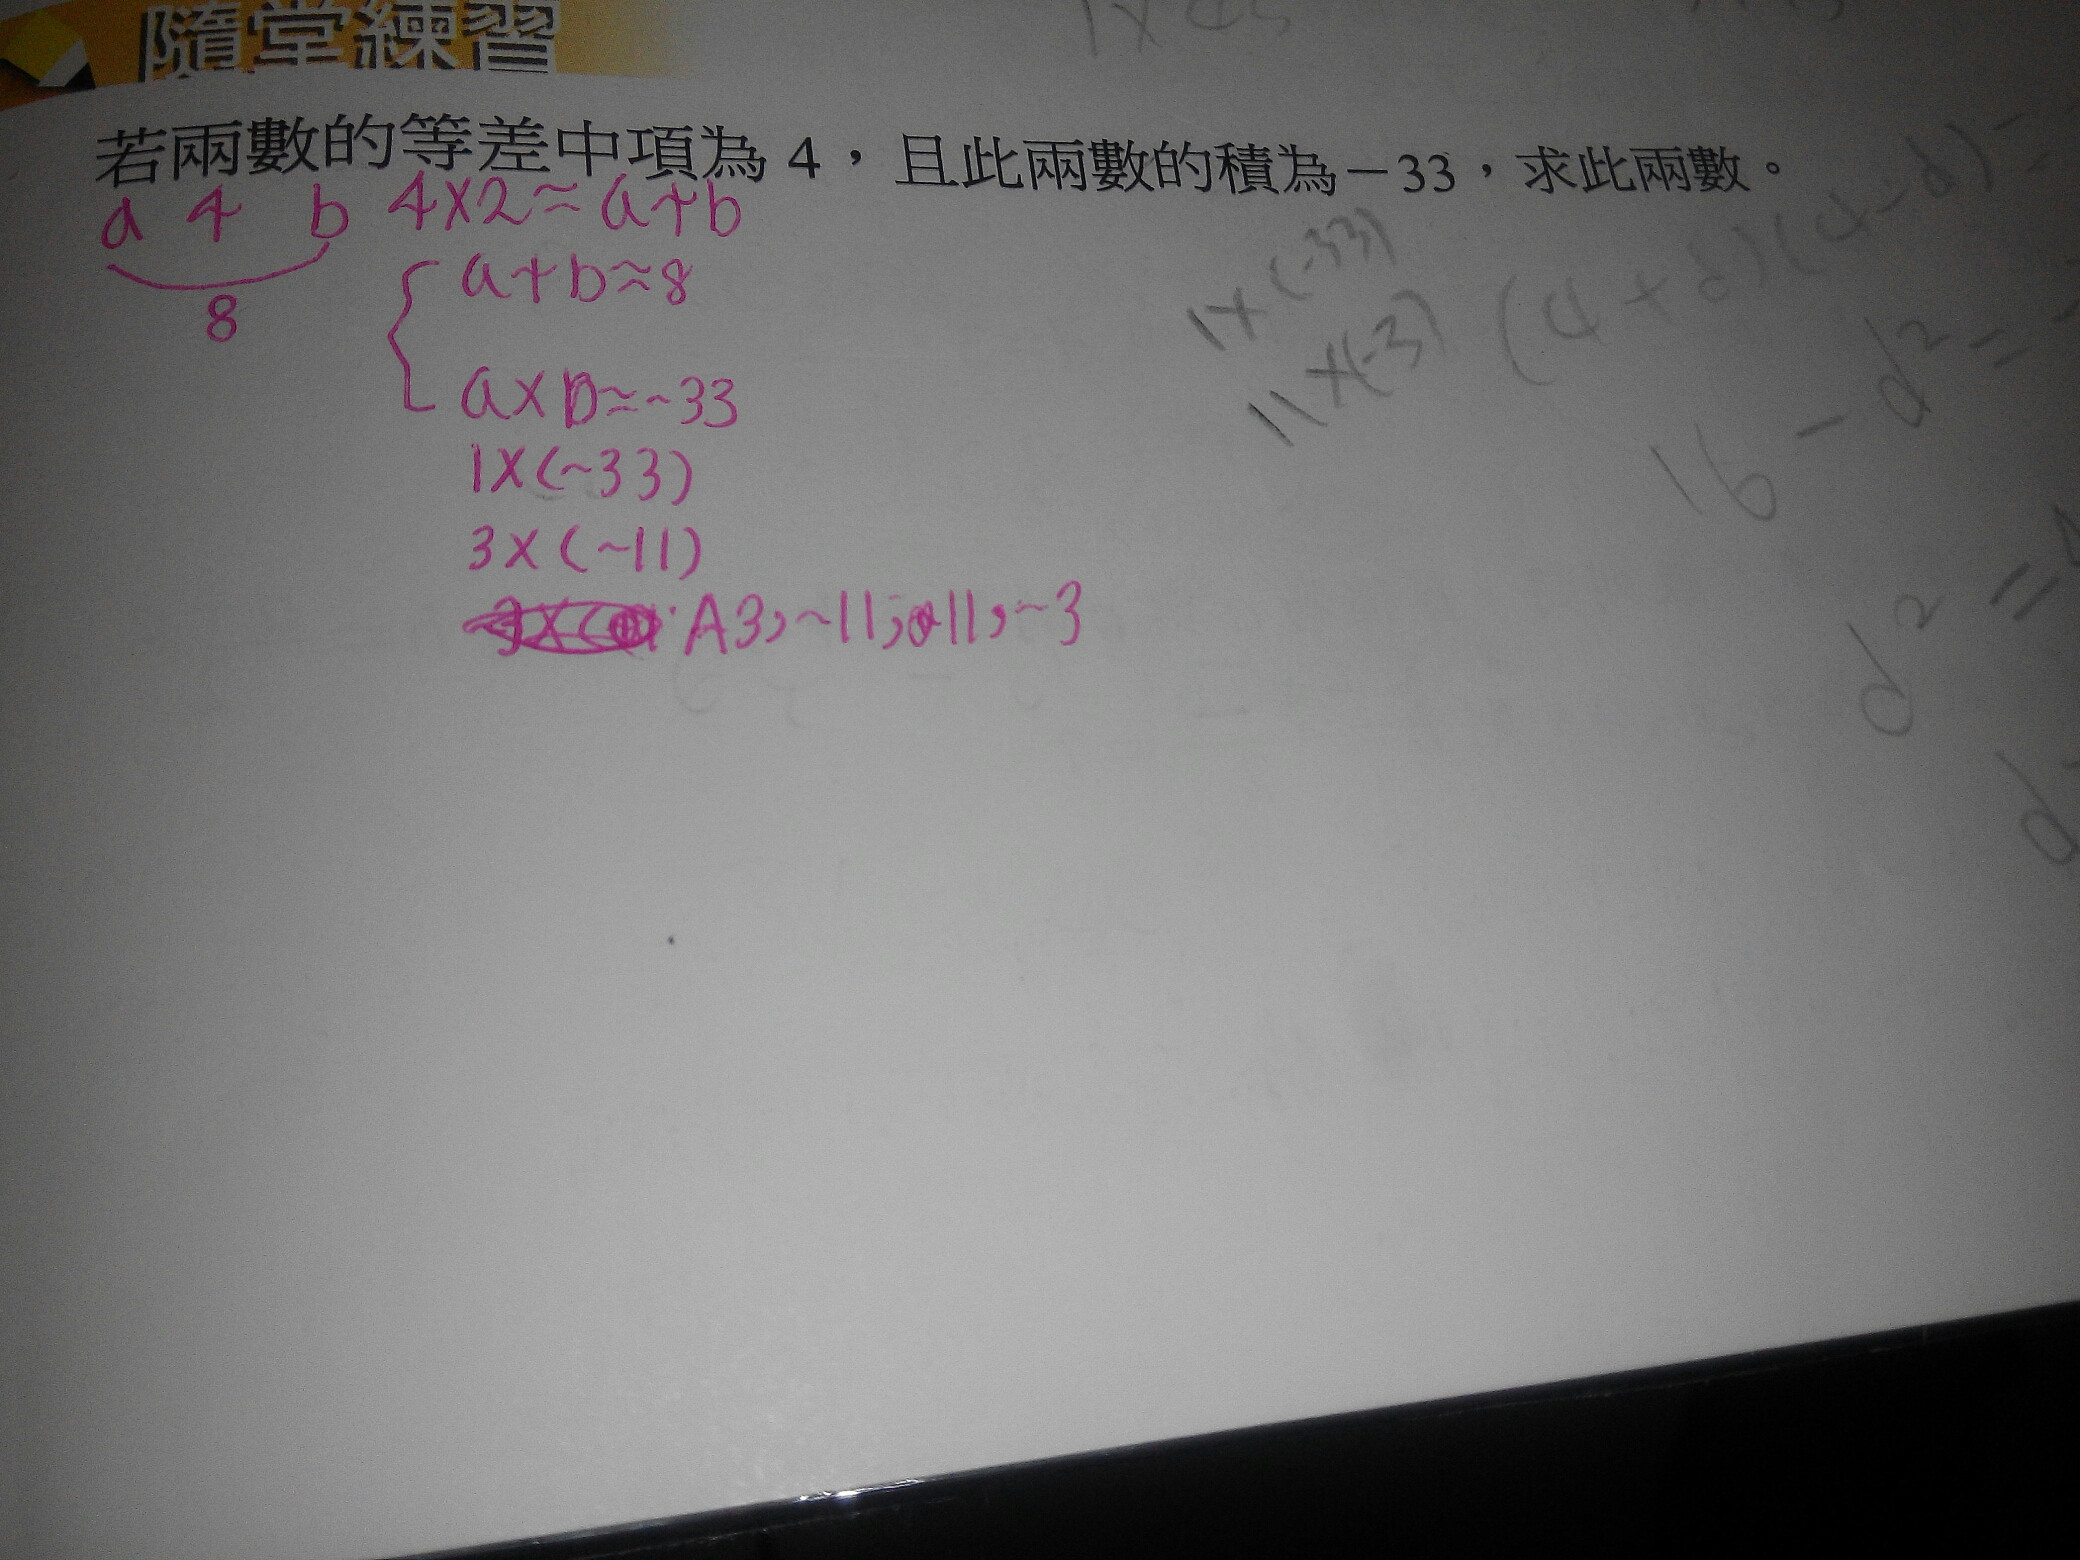 隨堂練習
若兩數的等差中項為 4，且此兩數的積為－33，求此兩數。
a 4 b 4×2=a+b
8
a+b=8
a×b=-33
1×(-33)
3×(-11)
A3,-11;11,-3
1×(-33)
11×(-3)
(4+d)(4-d)=
16-d²=
d²=
d